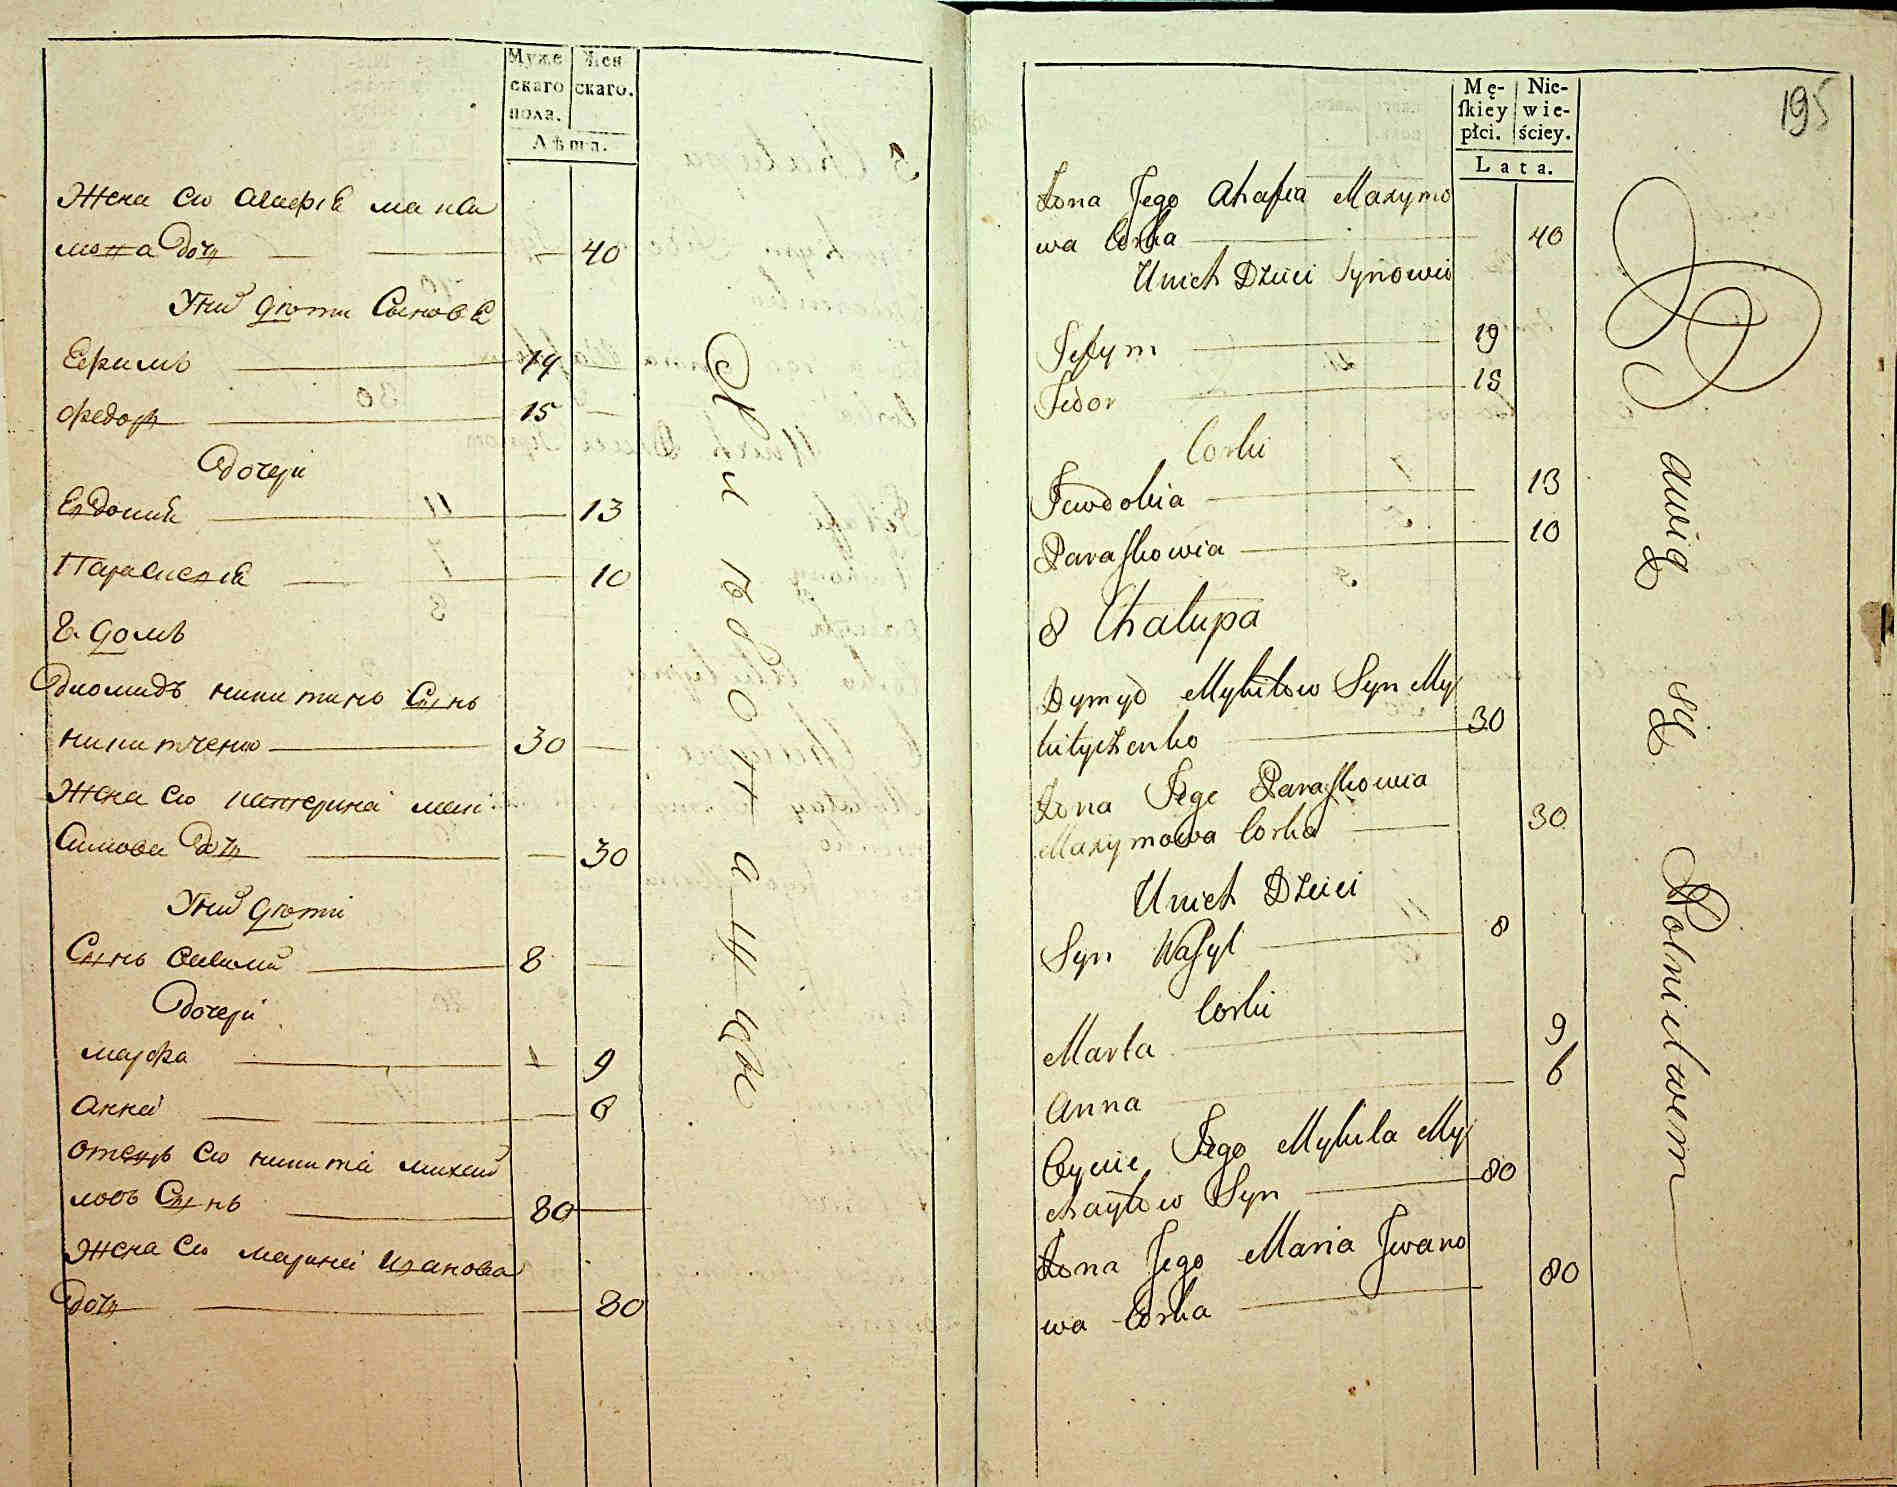 Муже
скаго
пола.
Жен
скаго.
Лѣта.
Жена его Агафiя макси
мова Дочь 40
У них дети Сыновя
Ефимъ 19
Федоръ 15
Дочери
Евдокия 13
Параскевiя 10
8. домъ
Диомидъ никитинъ Сынъ
никитченко 30
Жена его катерина мак
симова Дочь 30
У них дети
Сынъ 8
Дочери
марфа 9
анна 6
отецъ его никита михай
ловъ Сынъ 80
Жена его марина иванова
дочь 80
Мę-
ſkiey
płci.
Nie-
wie-
ściey.
Lata.
195
Żona Jego Ahafia Maxymo
wa Corka 40
Unich Dzieci Synowie
Jefym 19
Fedor 15
Corki
Jewdokia 13
Paraſkowia 10
8 Chałupa
Dymyd Mykitow Syn My
kityczenko 30
Żona Jego Paraſkowia
Maxymowa Corka 30
Unich Dzieci
Syn Waſyl 8
Corki
Marta 9
Anna 6
Oycie Jego Mykita My
chayłow Syn 80
Żona Jego Maria Jwano
wa Corka 80